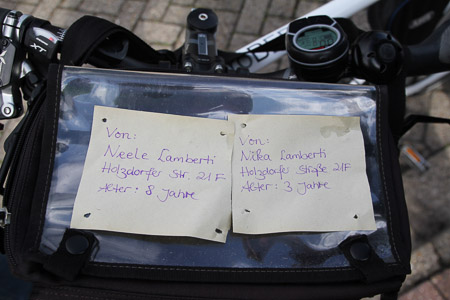 Von:
Neele Lamberti
Holzdorfer Str. 21F
Alter: 8 Jahre
Von:
Nika Lamberti
Holzdorfer Straße 21F
Alter: 3 Jahre